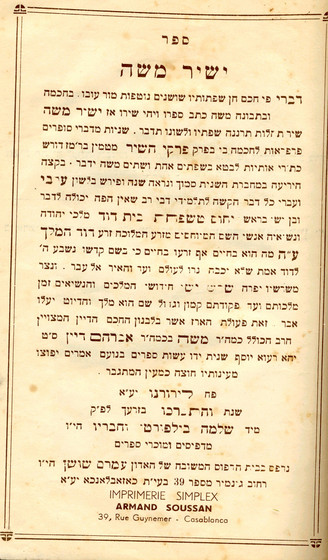 ספר
ישיר משה
דברי פי חכם חן שפתותיו שושנים נוטפות מור עובר. בחכמה
ובתבונה משה כתב ספרו ויהי שירו אז ישיר משה
שירת דלות תרננה שפתיו ולשונו תדבר. שניות מדברי סופרים
פרפראות לחכמה בי בפרק פרקי השיר מטמין ברמז דורש
כתרי אותיות לבטא בשפתים אחת ושתים משה ידבר. בקצה
היריעה במחברת השנית סמוך ונראה שנה ופירש בלשון ערבי
ועברי כל דבר הקשה לתלמידי דבי רב שאין הפה יכולה לדבר
ובן יש בראש יחוס משפחת בית דוד מלכי יהודה
ונשיאיה אנשי השם המיוחסים מזרע המלוכה זרע דוד המלך
ע״ה מה הוא בחיים אף זרעו בחיים כי בשם קדשו נשבע ה׳
לדוד אמת ש״א יכבה נרו לעולם ועד והאיר אל עבר. ונצר
משרשיו יפרה שרש ישי חידושי המלכים והנשיאים זמן
מלכותם ועד פקודתם קמן וגדול שם הוא מלך והדיוט יעלו
אבר. זאת פעולת הארז אשר בלבנון החכם הדיין המצויין
הרב הכולל כמה״ר משה בכמה״ר אברהם דיין ס״ט
יהא רעוא יוסף שנית ידו עשות ספרים בנועם אמרים יפוצו
מעינותיו חוצה כמעין המתגבר.
פה ליוורנו יע״א
שנת והתברכו בזרעך לפ״ק
מיד שלמה בילפורטי וחבריו הי״ו
מדפיסים ומוכרי ספרים
נדפס בבית הדפוס המשובח של האדון עמרם שושן הי״ו
רחוב ג׳נמיר מספר 39 בעי״ת כאזאבלאנכא יע״א
IMPRIMERIE SIMPLEX
ARMAND SOUSSAN
39, Rue Guynemer - Casablanca